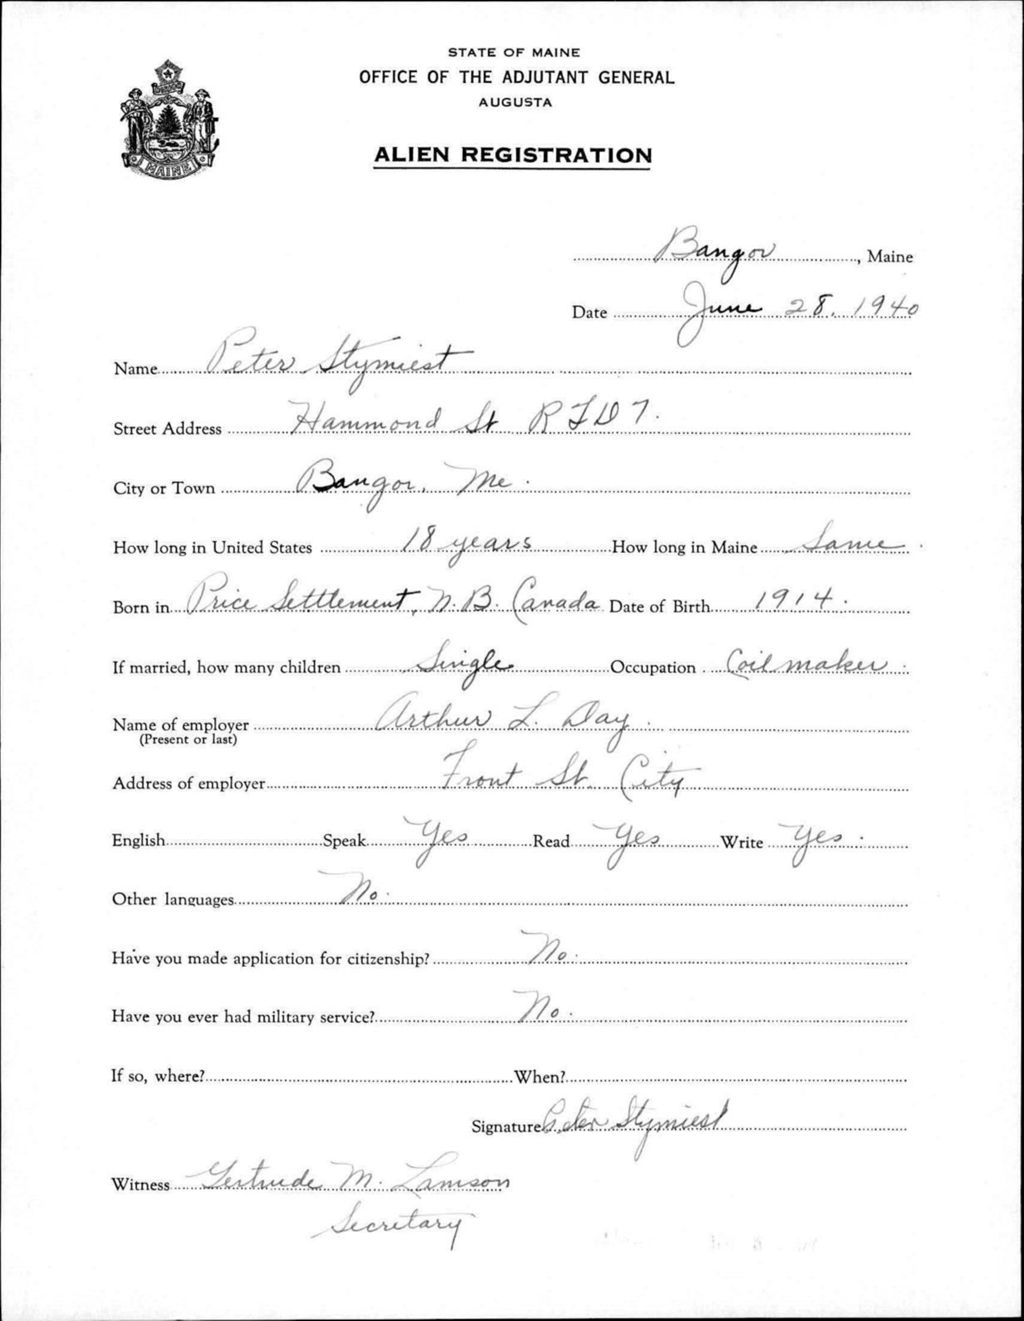 STATE OF MAINE
OFFICE OF THE ADJUTANT GENERAL
AUGUSTA
ALIEN REGISTRATION
MAINE
Bangor, Maine
Date June 28, 1940
Name Peter Stymiest
Street Address Hammond St RFD 7.
City or Town Bangor, Me.
How long in United States 18 years How long in Maine Same.
Born in Price Settlement, N.B. Canada Date of Birth 1914.
If married, how many children Single Occupation Coil maker.
Name of employer Arthur L. Day.
(Present or last)
Address of employer Front St. City
English Speak Yes Read Yes Write Yes.
Other languages No.
Have you made application for citizenship? No.
Have you ever had military service? No.
If so, where? When?
Signature Peter Stymiest
Witness Gertrude M. Lamson
Secretary